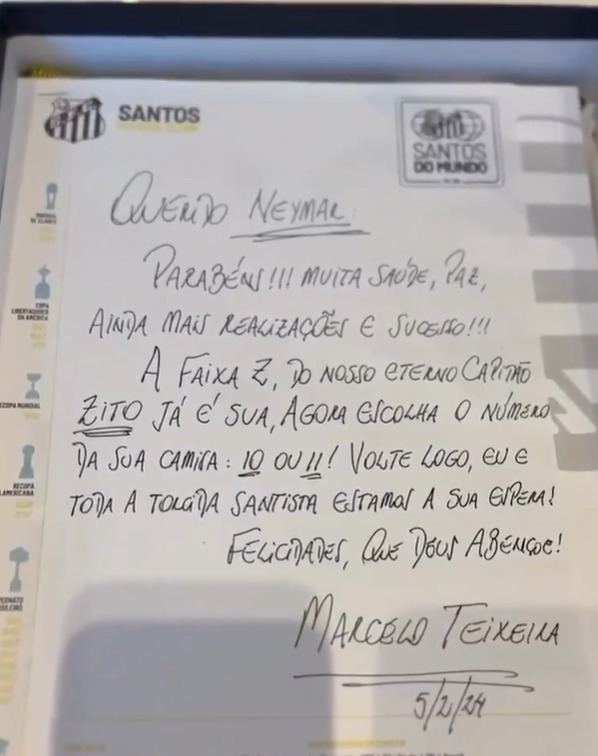 SANTOS
SANTOS
DO MUNDO
QUERIDO NEYMAR
PARABÉNS!!! MUITA SAÚDE, PAZ,
AINDA MAIS REALIZAÇÕES E SUCESSO!!!
A FAIXA Z, DO NOSSO ETERNO CAPITÃO
ZITO JÁ É SUA, AGORA ESCOLHA O NÚMERO
DA SUA CAMISA: 10 OU 11! VOLTE LOGO, EU E
TODA A TORCIDA SANTISTA ESTAMOS A SUA ESPERA!
FELICIDADES, QUE DEUS ABENÇOE!
MARCELO TEIXEIRA
5/2/24
COPA
LIBERTADORES
DA AMÉRICA
RECOPA MUNDIAL
RECOPA